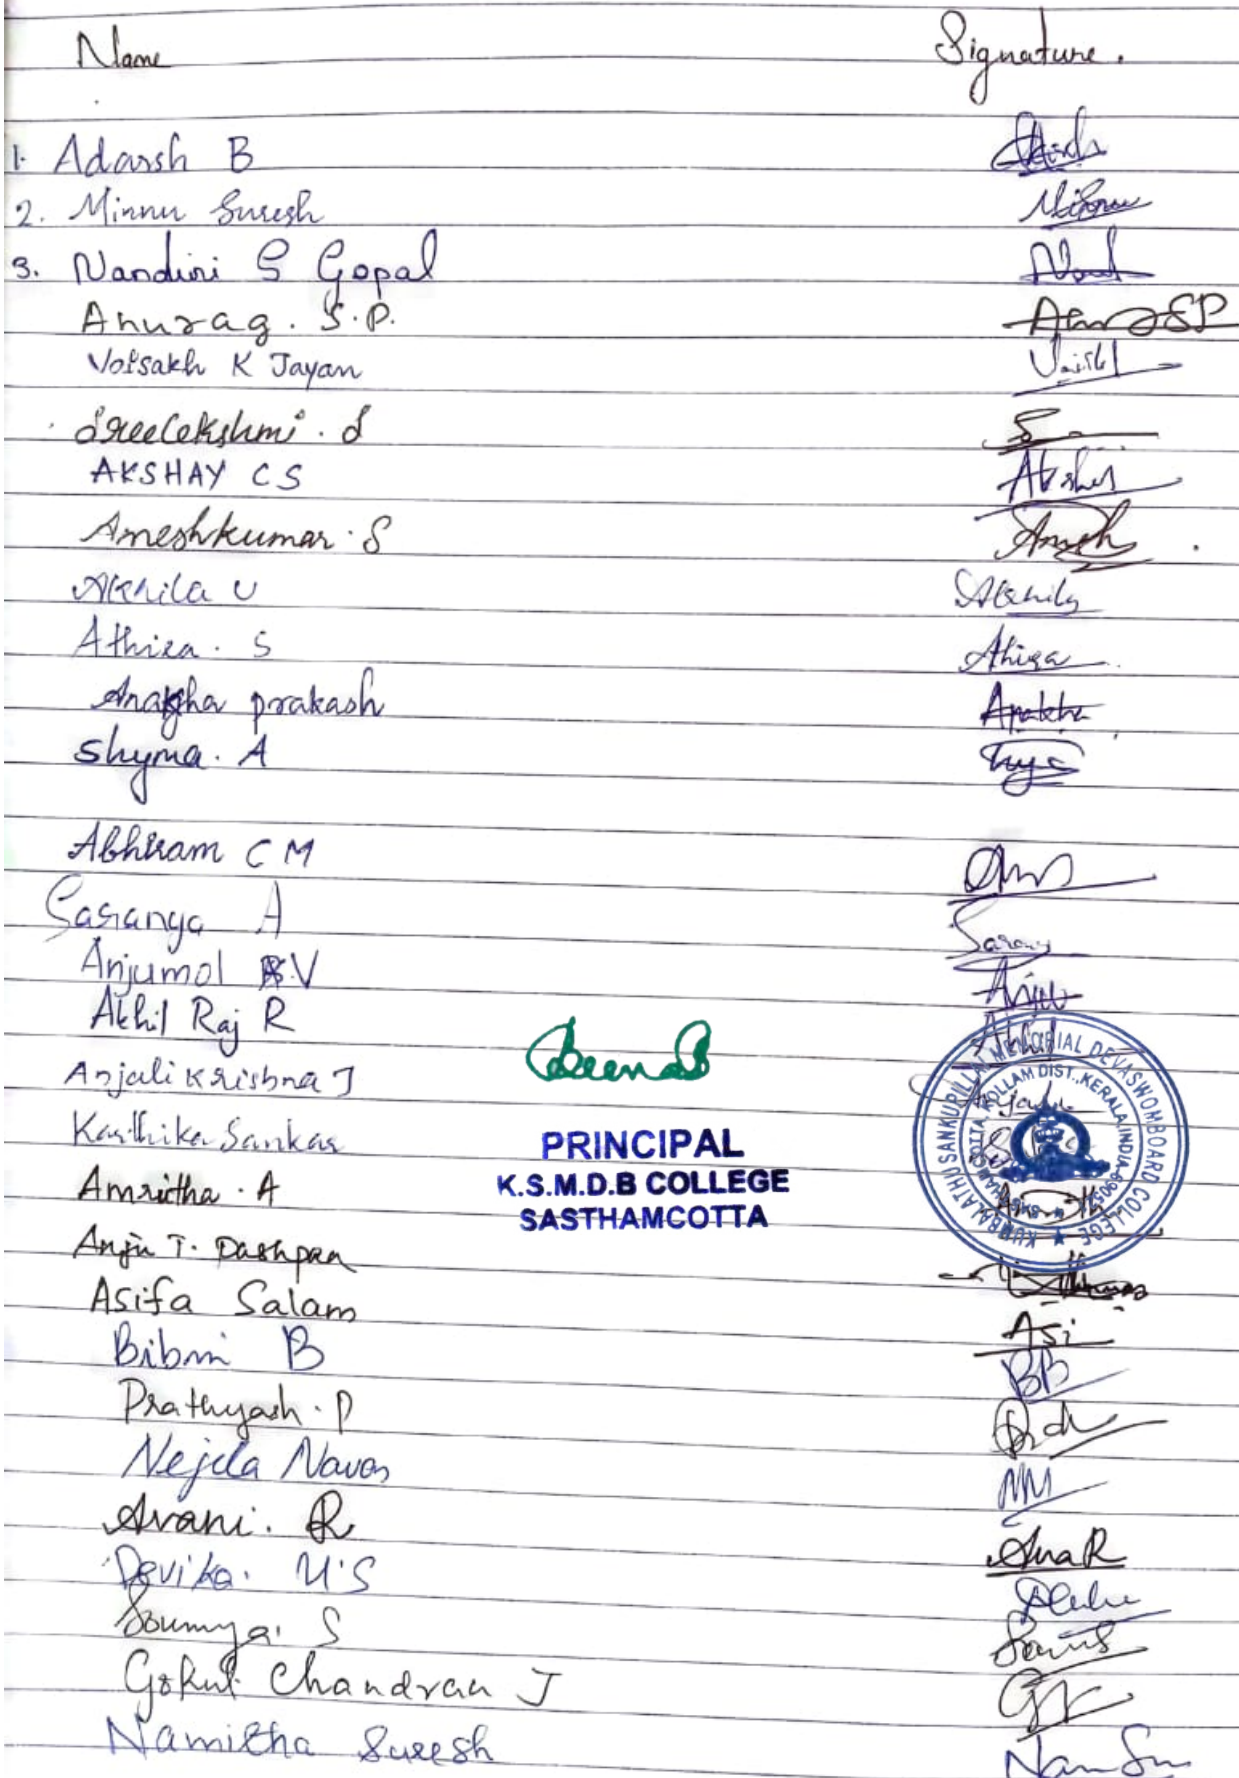 Name Signature.
1. Adarsh B
2. Minnu Suresh Minnu
3. Nandini S Gopal Nand
Anurag. S.P.
Voisakh K Jayan
Sreelekshmi. S S
AKSHAY CS Akshay
Ameshkumar. S Amesh
Akhila U Akhila
Athira. S Athira
Anagha prakash
Shyma. A
Abhiram C M
Saranga A Sarang
Anjumol V Anju
Akhil Raj R Akhil
Anjali Krishna J
Karthika Sankar
Amritha. A
Anju T. Dashpan
Asifa Salam Asi
Bibin B BB
Prathyash. P
Nejila Navas
Avani. R AvaR
Devika. U.S
Soumya. S
Gokul Chandran J
Namitha Suresh Nam Su
PRINCIPAL
K.S.M.D.B COLLEGE
SASTHAMCOTTA
KUMBALATHU SANKUPILLAI MEMORIAL DEVASWOMBOARD COLLEGE
KOLLAM DIST., KERALA, INDIA